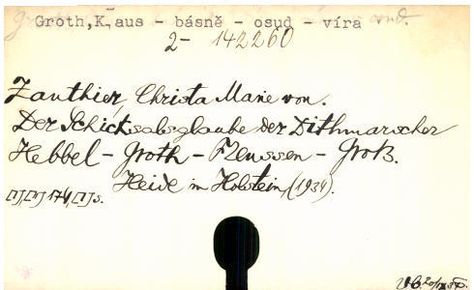 Groth,Klaus - básně - osud - víra
2- 142260
Zanthier, Christa Marie von.
Der Schicksalsglaube der Dithmarscher
Hebbel - Groth - Frenssen - Groß.
Heide in Holstein, (1934).
[1], [1] 174, [1] s.